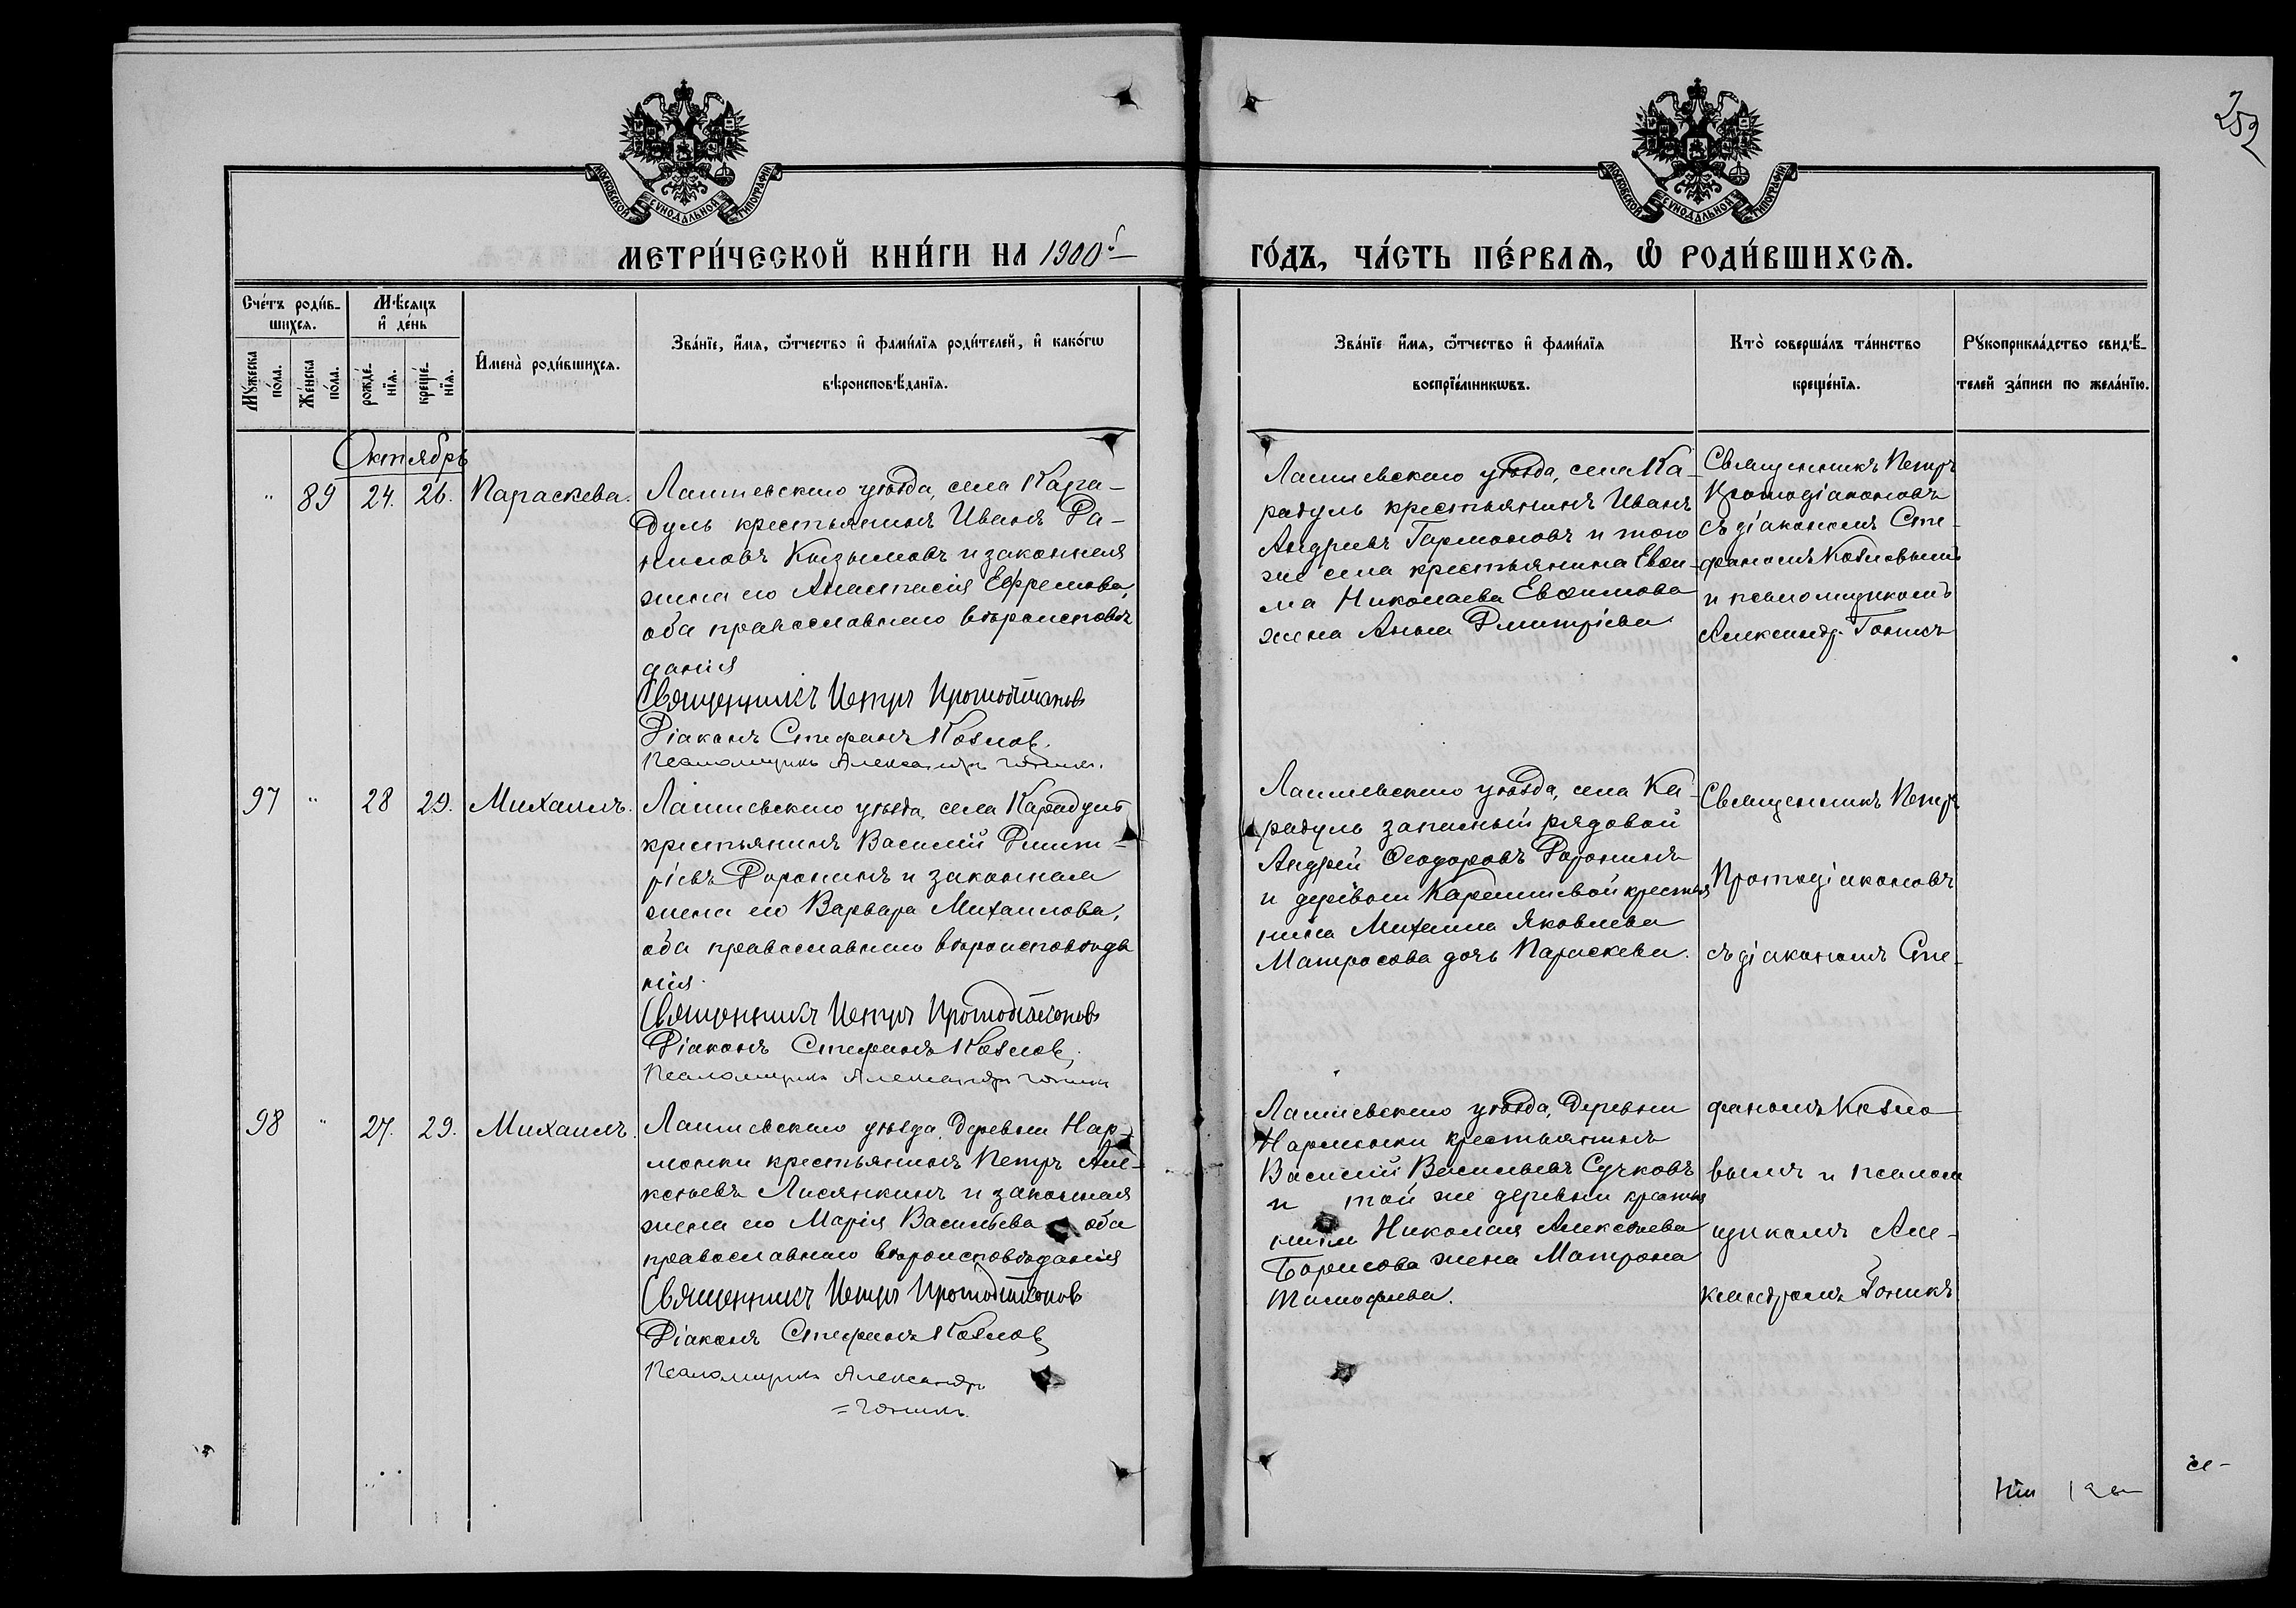 252
МОСКОВСКОЙ СѴНОДАЛЬНОЙ ТИПОГРАФІИ
МОСКОВСКОЙ СѴНОДАЛЬНОЙ ТИПОГРАФІИ
МЕТРИ́ЧЕСКОЙ КНИ́ГИ НА 1900й
ГО́ДЪ, ЧА́СТЬ ПЕ́РВАѦ, Ѽ РОДИ́ВШИХСѦ.
Сче́тъ роди́в-
шихсѧ.
Мѣ́сѧцъ
и҆ де́нь
Мꙋ́жеска по́ла.
Же́нска по́ла.
рожде́нїѧ.
креще́нїѧ.
И҆мена̀ роди́вшихсѧ.
Зва́нїе, и҆́мѧ, ѻ҆́тчество и҆ фами́лїѧ роди́телей, и҆ како́гѡ
вѣроисповѣ́данїѧ.
Зва́нїе и҆́мѧ, ѻ҆́тчество и҆ фами́лїѧ
воспрїе́мникѡвъ.
Кто̀ соверша́лъ та́инство
креще́нїѧ.
Рꙋкоприкла́дство свидѣ́-
телей за́писи по жела́нїю.
Октябрь
" 89 24. 26. Параскева.
Лаишевскаго уѣзда, села Кара-
дуль крестьянинъ Иванъ Да-
ниловъ Кызымовъ и законная
жена его Анастасія Ефремова,
оба православнаго вѣроисповѣ
данія
Священникъ Петръ Протодіаконовъ
Діаконъ Стефанъ Козловъ
Псаломщикъ Александръ Гоникъ.
Лаишевскаго уѣзда, села Ка-
радуль крестьянинъ Иванъ
Андреевъ Гармоновъ и того
же села крестьянина Евѳи-
ма Николаева Евѳимова
жена Анна Дмитріева
Священникъ Петръ
Протодіаконовъ
съ діакономъ Сте-
фаномъ Козловымъ
и псаломщикомъ
Александр. Гоникъ
97 " 28 29. Михаилъ.
Лаишевскаго уѣзда, села Карадуль
крестьянинъ Василій Дмит-
ріевъ Доронинъ и законная
жена его Варвара Михаилова,
оба православнаго вѣроисповѣда
нія.
Священникъ Петръ Протодіаконовъ
Діаконъ Стефанъ Козловъ
Псаломщикъ Александръ Гоникъ
Лаишевскаго уѣзда, села Ка-
радуль запасный рядовой
Андрей Ѳеодоровъ Доронинъ
и деревни Карташевой крестья
нина Михаила Яковлева
Матросова дочь Параскева.
Священникъ Петръ
Протодіаконовъ
съ діакономъ Сте-
98 " 27. 29. Михаилъ.
Лаишевскаго уѣзда, деревни Нар-
монки крестьянинъ Петръ Але-
ксѣевъ Лисянкинъ и законная
жена его Марія Васильева оба
православнаго вѣроисповѣданія
Священникъ Петръ Протодіаконовъ
Діаконъ Стефанъ Козловъ
Псаломщикъ Александръ
=Гоникъ.
Лаишевскаго уѣзда, деревни
Нармонки крестьянинъ
Василій Васильевъ Сучковъ
и той же деревни крестья
нина Николая Алексѣева
Борисова жена Матрона
Тимофеева.
фаномъ Козло
вымъ и псалом
щикомъ Але-
ксандромъ Гоникъ